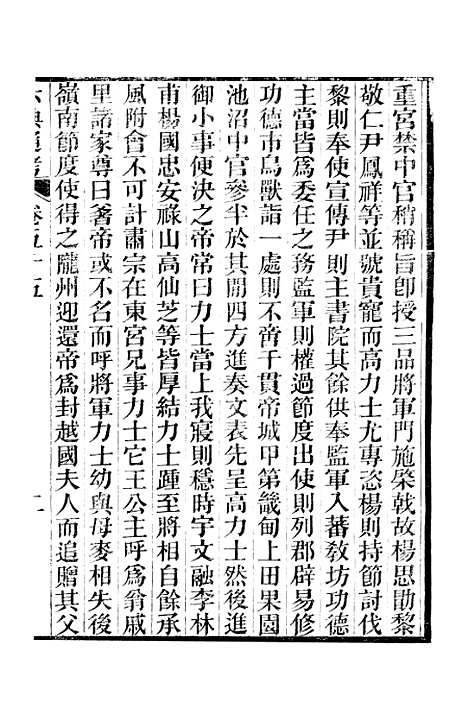 重宮禁中官稍稱旨卽授三品將軍門施棨戟故楊思勖黎
敬仁尹鳳祥等並號貴寵而高力士尤專恣楊則持節討伐
黎則奉使宣傳尹則主書院其餘供奉監軍入蕃敎坊功德
主當皆爲委任之務監軍則權過節度出使則列郡辟易修
功德市鳥獸詣一處則不啻千貫帝城甲第畿甸上田果園
池沼中官參半於其閒四方進奏文表先呈高力士然後進
御小事便決之帝常曰力士當上我寢則穩時宇文融李林
甫楊國忠安祿山高仙芝等皆厚結力士踵至將相自餘承
風附會不可計肅宗在東宮兄事力士它王公主呼爲翁戚
里諸家尊曰爹帝或不名而呼將軍力士幼與母麥相失後
嶺南節度使得之隴州迎還帝爲封越國夫人而追贈其父
六典通考 卷五十五 二